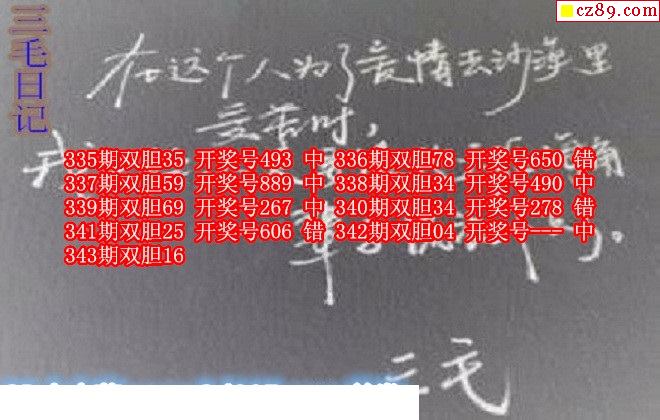 cz89.com
三毛日记
在这个人为了爱情去沙漠里
受苦时，
335期双胆35 开奖号493 中 336期双胆78 开奖号650 错
337期双胆59 开奖号889 中 338期双胆34 开奖号490 中
339期双胆69 开奖号267 中 340期双胆34 开奖号278 错
341期双胆25 开奖号606 错 342期双胆04 开奖号--- 中
343期双胆16
三毛